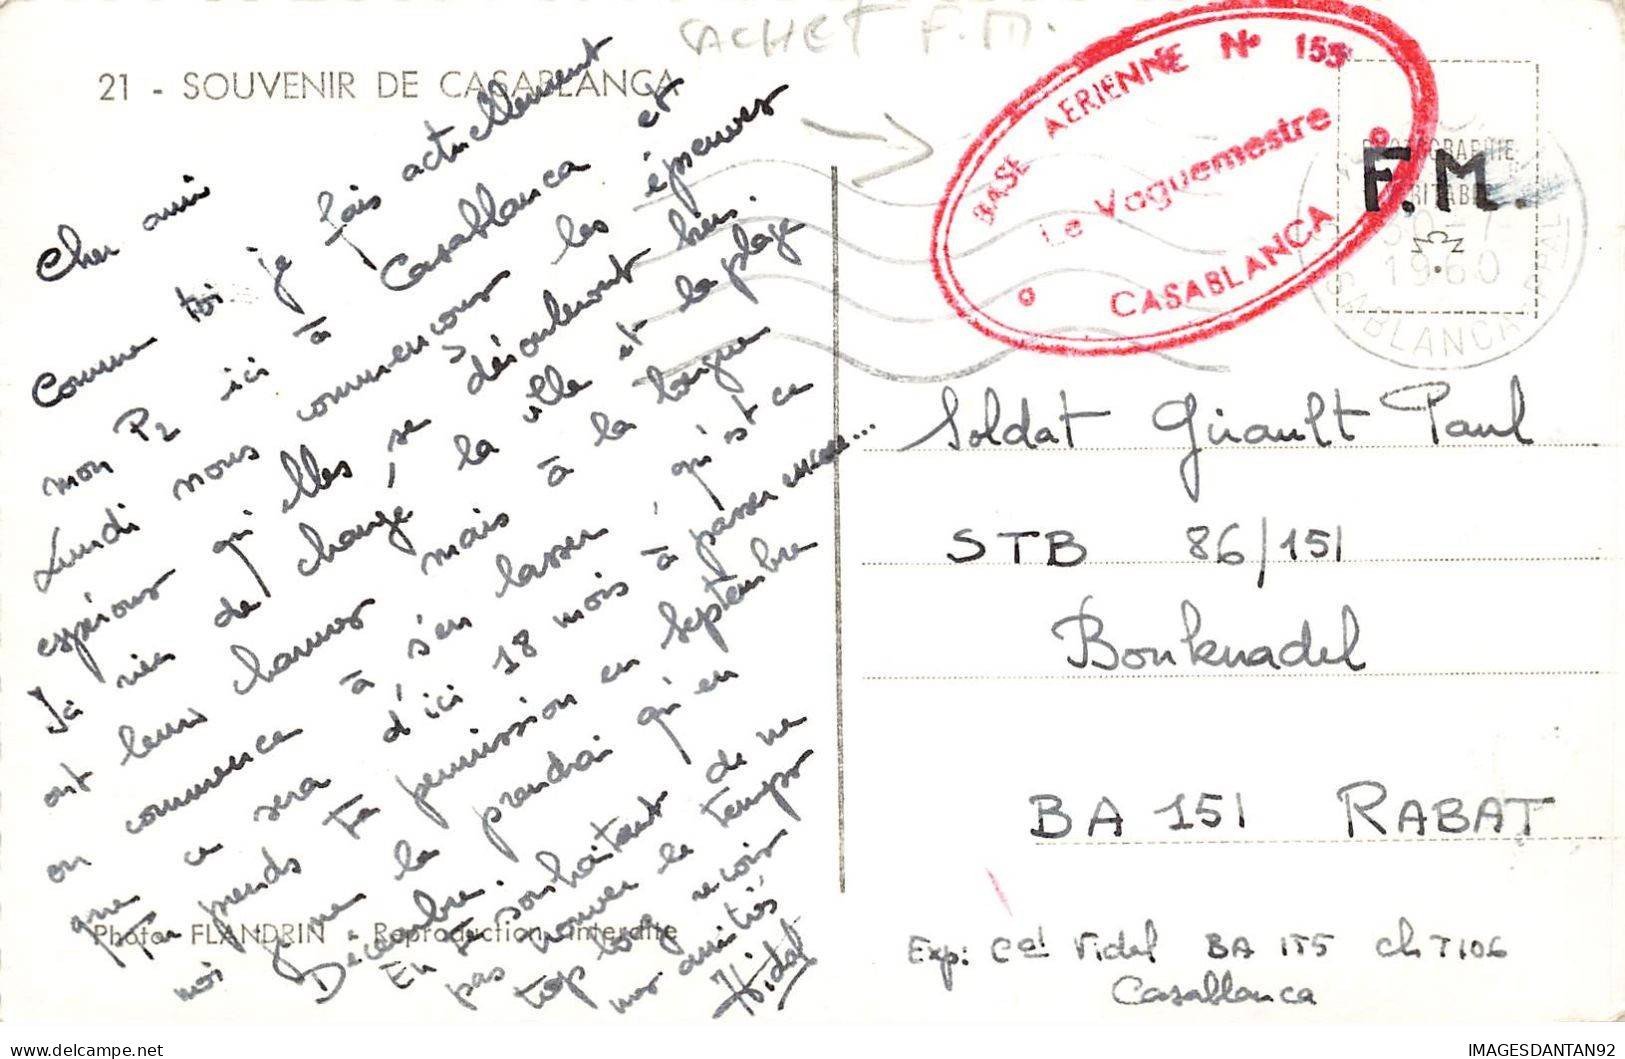 CACHET F.M.
21 - SOUVENIR DE CASABLANCA
Cher ami
Comme toi je fais actuellement
mon P2 ici à Casablanca et
Lundi nous commencons les épreuves
espérons qu'elles se dérouleront bien.
Ici rien de changé, la ville et la plage
ont leurs charmes mais à la longue
on commence à s'en lasser, qu'est ce
que ce sera d'ici 18 mois à passer encore...
Tu prends ta permission en Septembre
moi je ne la prendrai qu'en
Décembre.
En te souhaitant de ne
pas trouver le temps
trop long reçois
mes amitiés
Vidal
Photo FLANDRIN - Reproduction interdite
BASE AERIENNE N° 155
Le Vaguemestre
CASABLANCA
PHOTOGRAPHIE
VERITABLE
F.M.
30-7
1960
CASABLANCA
Soldat Girault Paul
STB 86/151
Bouknadel
BA 151 RABAT
Exp: Cal Vidal BA 155 Ch T106
Casablanca
IMAGESDANTAN92